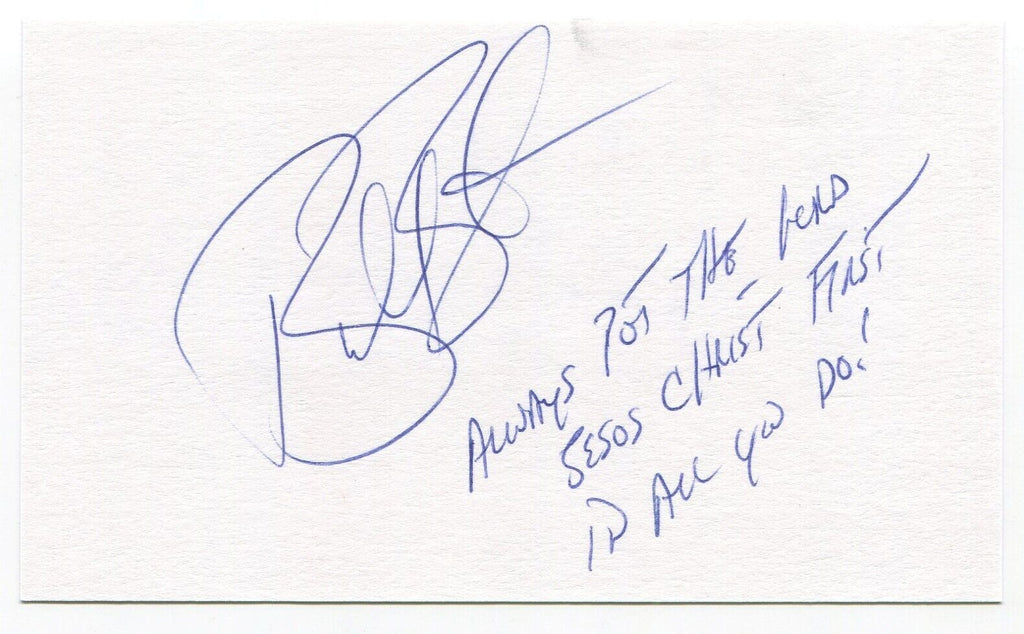 ALWAYS PUT THE LORD
JESUS CHRIST FIRST
IN ALL YOU DO!